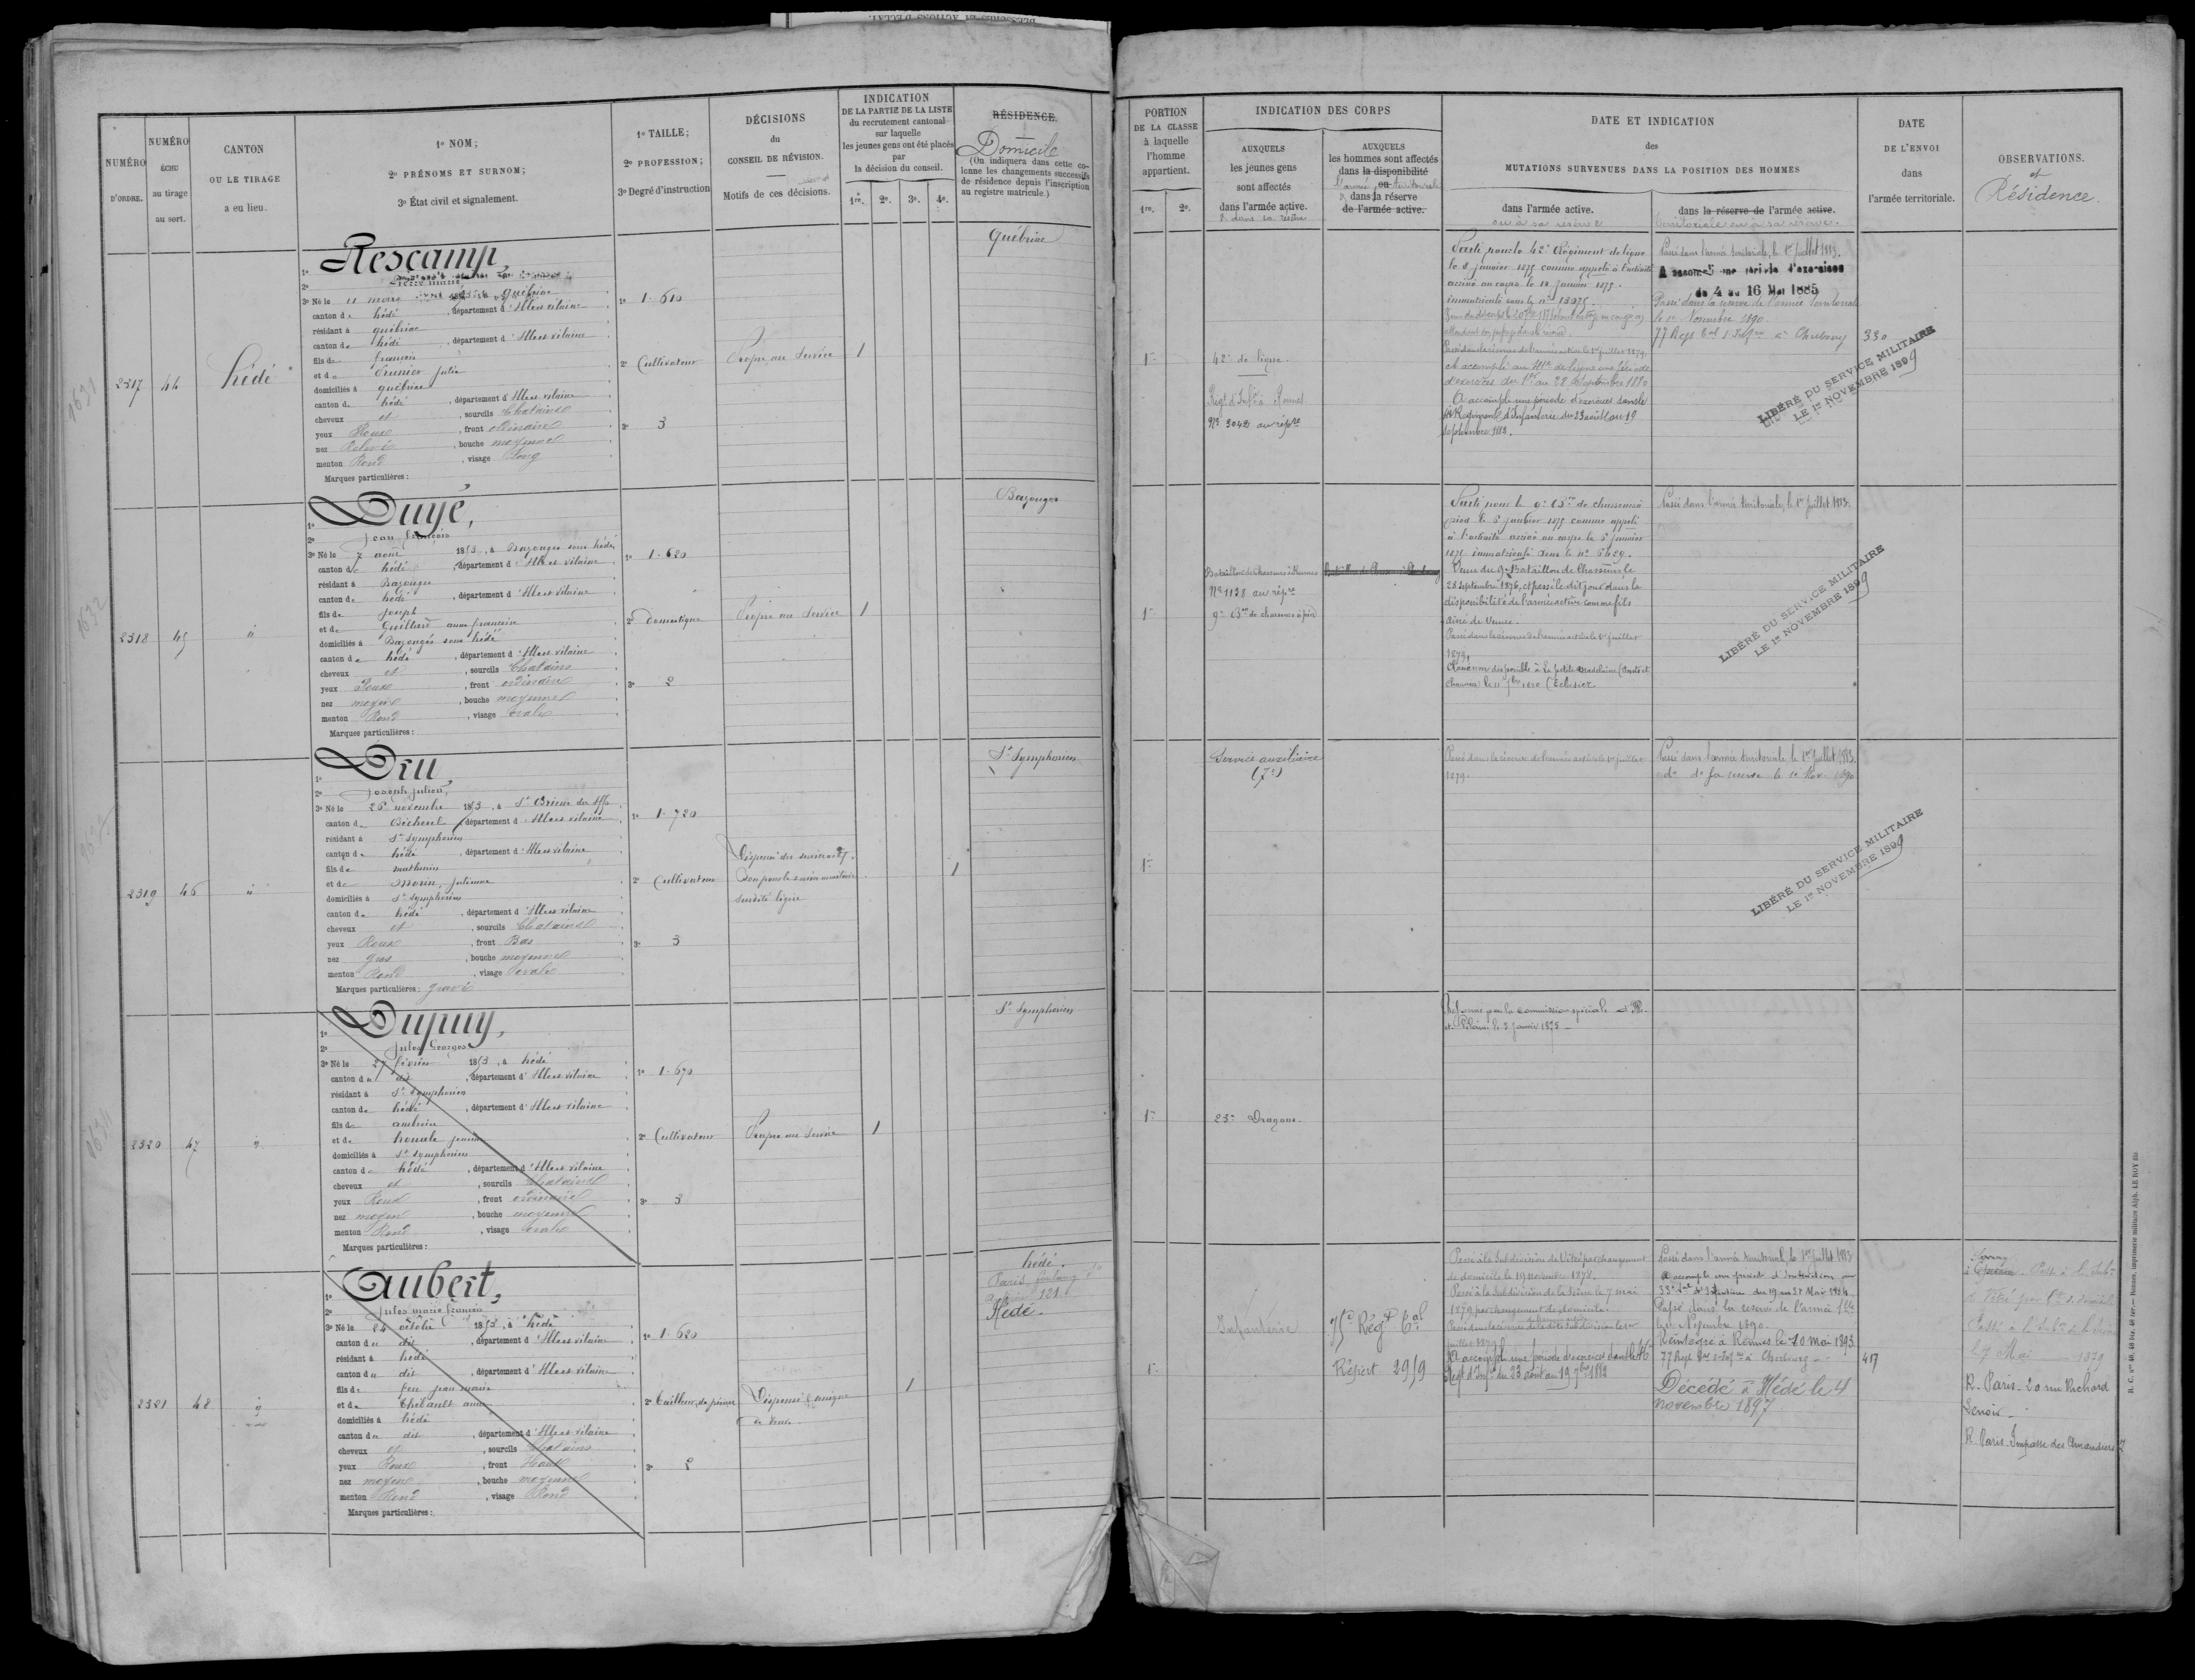 NUMÉRO D'ORDRE.
NUMÉRO ÉCHU au tirage au sort.
CANTON OU LE TIRAGE a eu lieu.
1º NOM;
2º PRÉNOMS ET SURNOM;
3º État civil et signalement.
1º TAILLE;
2º PROFESSION;
3º Degré d'instruction
DÉCISIONS du CONSEIL DE RÉVISION.
Motifs de ces décisions.
INDICATION
DE LA PARTIE DE LA LISTE
du recrutement cantonal
sur laquelle
les jeunes gens ont été placés
par
la décision du conseil.
1re. 2e. 3e. 4e.
RÉSIDENCE.
Domicile
(On indiquera dans cette colonne les changements successifs
de résidence depuis l'inscription
au registre matricule.)
PORTION
DE LA CLASSE
à laquelle
l'homme
appartient.
1re. 2e.
INDICATION DES CORPS
AUXQUELS
les jeunes gens
sont affectés
dans l'armée active.
& dans sa réserve
AUXQUELS
les hommes sont affectés
dans la disponibilité
ou
l'armée territoriale
& dans la réserve
de l'armée active.
DATE ET INDICATION
des
MUTATIONS SURVENUES DANS LA POSITION DES HOMMES
dans l'armée active.
ou à sa réserve
dans la réserve de l'armée active.
territoriale ou à sa réserve.
DATE
DE L'ENVOI
dans
l'armée territoriale.
OBSERVATIONS.
et
Résidence.
2317
44
hédé
Rescamp,
Pierre marie
3º Né le 11 mars , à Québriac
canton de hédé , département d'Ille et vilaine
résidant à québriac
canton de hédé , département d'Ille et vilaine
fils de françois
et de Prunier julie
domiciliés à québriac
canton de hédé , département d'Ille et vilaine
cheveux et , sourcils Chatains
yeux Roux , front ordinaire
nez Relevé , bouche moyenne
menton Rond , visage Long
Marques particulières :
1º 1.610
2º Cultivateur
3º 3
Propre au Service
1
Québriac
1re
42e de ligne.
Regt d'Infie à Rennes
Nº 2042 au répre
Parti pour le 42e Régiment de ligne
le 8 janvier 1875 comme appelé à l'activité
arrivé au corps le 12 janvier 1875.
immatriculé sous le nº 13075.
Passé dans la réserve de l'armée active le 1er juillet 1879.
A accompli au 41e de ligne une période
d'exercices du 1er au 28 Septembre 1880
A accompli une période d'exercices dans le
Régiment d'Infanterie du 23 août au 19
septembre 1882.
Passé dans l'armée territoriale, le 1er juillet 1883.
A accompli une période d'exercices
du 4 au 16 Mai 1885
Passé dans la réserve de l'armée territoriale
le 1er Novembre 1890.
77 Regt à Cherbourg
330
LIBÉRÉ DU SERVICE MILITAIRE
LE 1er NOVEMBRE 1899
2318
45
"
Duyé,
jean françois
3º Né le 7 août 1853, à Bazouges sous hédé
canton de hédé , département d'Ille et vilaine
résidant à Bazouges
canton de hédé , département d'Ille et vilaine
fils de joseph
et de Guillard anne françoise
domiciliés à Bazouges sous hédé
canton de hédé , département d'Ille et vilaine
cheveux et , sourcils Chatains
yeux Roux , front ordinaire
nez moyen , bouche moyenne
menton Rond , visage ovale
Marques particulières :
1º 1.620
2º Domestique
3º 2
Propre au Service
1
Bazouges
1re
Bataillon de Chasseurs à Rennes
Nº 1138 au répre
9e Bon de chasseurs à pied
Parti pour le 9e Bon de chasseurs à
pied le 5 janvier 1875 comme appelé
à l'activité arrivé au corps le 5 janvier
1875 immatriculé sous le nº 5629.
Venu du 9e Bataillon de Chasseurs le
28 septembre 1876, et passé le dit jour dans la
disponibilité de l'armée active comme fils
aîné de Veuve.
Passé dans la réserve de l'armée active le 1er juillet
1879.
disponible à La petite Madelaine (Ponts et
Chaussées) le 11 7bre 1880 (Eclusier
Passé dans l'armée territoriale, le 1er juillet 1883.
LIBÉRÉ DU SERVICE MILITAIRE
LE 1er NOVEMBRE 1899
2319
46
"
Dru,
joseph julien,
3º Né le 26 novembre 1853, à St Brieuc des Iffs
canton de Bécherel , département d'Ille et vilaine
résidant à St Symphorien
canton de hédé , département d'Ille et vilaine
fils de mathurin
et de Morin, julienne
domiciliés à St Symphorien
canton de hédé , département d'Ille et vilaine
cheveux et , sourcils Chatains
yeux Roux , front Bas
nez gros , bouche moyenne
menton Rond , visage ovale
Marques particulières : gravé
1º 1.720
2º Cultivateur
3º 3
Dispensé du service actif.
Bon pour le service auxiliaire
surdité légère
1
St Symphorien
1re
Service auxiliaire
(7e)
Passé dans la réserve de l'armée active le 1er juillet
1879.
Passé dans l'armée territoriale le 1er juillet 1883.
do do sa réserve le 1er Nov. 1890
LIBÉRÉ DU SERVICE MILITAIRE
LE 1er NOVEMBRE 1899
2320
47
"
Dupuy,
jules Georges
3º Né le 27 février 1853, à hédé
canton du dit , département d'Ille et vilaine
résidant à St Symphorien
canton de hédé , département d'Ille et vilaine
fils de ambroise
et de
domiciliés à St Symphorien
canton de hédé , département d'Ille et vilaine
cheveux et , sourcils Chatains
yeux Roux , front ordinaire
nez moyen , bouche moyenne
menton Rond , visage ovale
Marques particulières :
1º 1.670
2º Cultivateur
3º 3
Propre au Service
1
St Symphorien
1re
23e Dragons.
Réformé par la commission spéciale d'Ille
et Vilaine le 5 janvier 1875
2321
48
"
Aubert,
jules marie françois
3º Né le 24 octobre 1853, à hédé
canton du dit , département d'Ille et vilaine
résidant à hédé
canton du dit , département d'Ille et vilaine
fils de feu jean marie
et de Thébault anne
domiciliés à hédé
canton du dit , département d'Ille et vilaine
cheveux et , sourcils Chatains
yeux Roux , front Haut
nez moyen , bouche moyenne
menton Rond , visage Rond
Marques particulières :
1º 1.620
2º Tailleur de pierres
3º 2
Dispensé fils unique
de Veuve
1
hédé.
Paris
121
Hédé.
1re
Infanterie
75e Régt Tal
Répert 2959
Passé à la Subdivision de Vitré par changement
de domicile le 19 novembre 1878.
Passé à la Subdivision de la Seine le 7 mai
1879 par changement de domicile.
A accompli une période d'exercices dans le
Regt d'Infie du 23 août au 19 7bre 1882
Passé dans l'armée territoriale, le 1er juillet 1883
A accompli une période d'instruction au
33e d'Infanterie du 19 au 31 Mai 1884
Passé dans la réserve de l'armée tle
le 1er Novembre 1890.
Réintégré à Rennes le 10 mai 1893
77 Regt à Cherbourg
Décédé à Hédé le 4
novembre 1897
417
Passé à la Subon
de Vitré par Ct de domicile
Passé à la Subon de la Seine
le 7 Mai 1879
R. Paris 20 rue Richard
Lenoir
R. Paris Impasse des Amandiers 7
1631
1632
R. C. nos 48, 48 bis, 48 ter. — Rennes, imprimerie militaire Alph. LE ROY fils